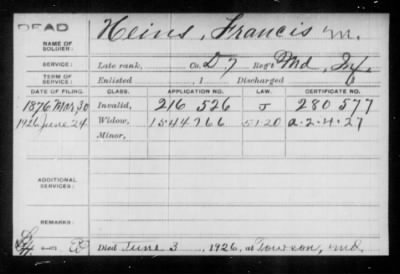 DEAD
Heins, Francis M.
NAME OF SOLDIER:
SERVICE: Late rank, Co. D 7 Reg't Md, Inf.
TERM OF SERVICE: Enlisted , 1 Discharged
DATE OF FILING. CLASS. APPLICATION NO. LAW. CERTIFICATE NO.
1876 Mar, 30 Invalid, 216 526 J 280 577
1926 June 24 Widow, 1544766 5120 a-2-4-27
Minor,
ADDITIONAL SERVICES:
REMARKS:
Died June 3 , 1926, at Towson, Md.